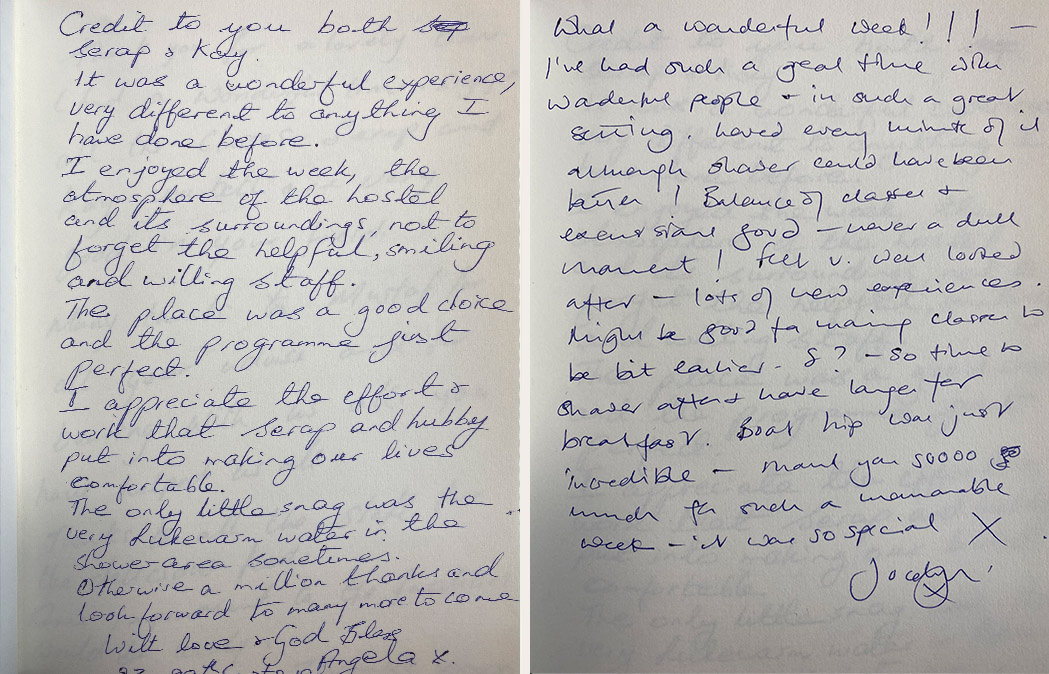 Credit to you both
Serap & Kay.
It was a wonderful experience,
very different to anything I
have done before.
I enjoyed the week, the
atmosphere of the hostel
and its surroundings, not to
forget the helpful, smiling
and willing staff.
The place was a good choice
and the programme just
perfect.
I appreciate the effort &
work that Serap and hubby
put into making our lives
comfortable.
The only little snag was the
very lukewarm water in the
shower area sometimes.
Otherwise a million thanks and
look forward to many more to come
With love & God Bless
Angela x.
What a wonderful week!!! —
I've had such a great time with
wonderful people & in such a great
setting. Loved every minute of it
although shower could have been
better! Balance of classes &
excursions good — never a dull
moment! Feel v. well looked
after — lots of new experiences.
Might be good for morning classes to
be bit earlier - 8? — so time to
shower after & have longer for
breakfast. Boat trip was just
incredible — thank you soooo
much for such a memorable
week — it was so special X
Jocelyn